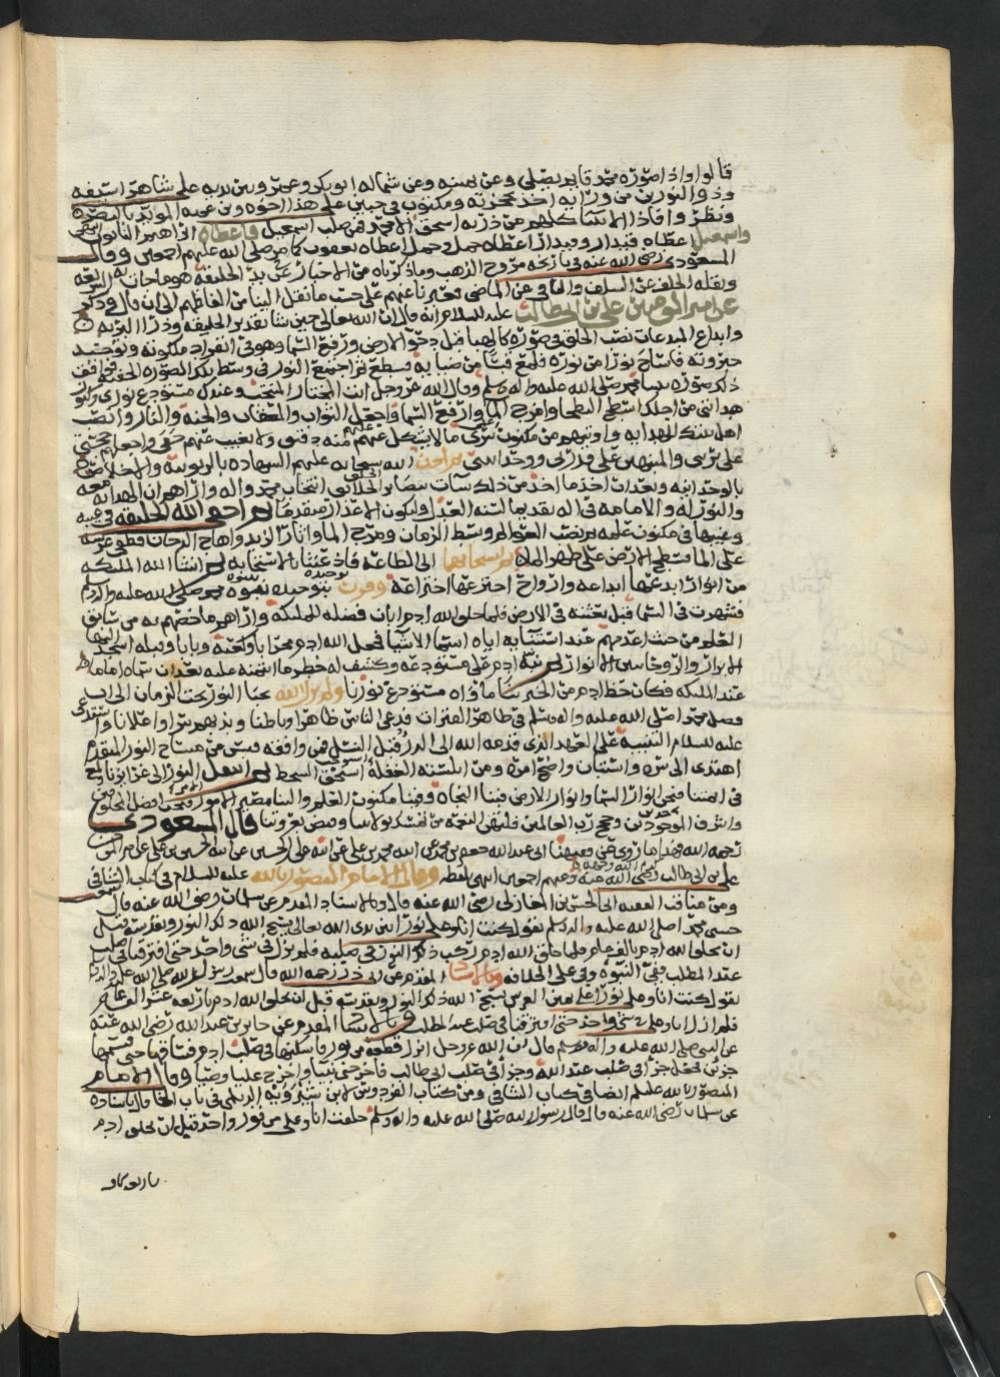 قالوا واذا صورة محمد قايم يصلي وعن يمينه وعن شماله ابو بكر وعمر وبين يديه علي شاهرا سيفه
وذو النورين من ورايه اخذ بحجزته ومكتوب في جبين علي هذا اخوه وبن عمه المويد بالنصر
ونظر واذا الانبيا كلهم من ذرية اسحق الا محمد من صلب اسمعيل فاعطاه ابراهيم التابوت
واسمعيل اعطاه قيدار وقيدار اعطاه حمل وحمل اعطاه يعقوب صلى الله عليهم اجمعين وقال
المسعودي رضي الله عنه في تاريخه مروج الذهب وما ذكرناه من الاخبار عن بدو الخليقة هو ما جات به الشريعة
ونقله الخلف عن السلف والباقي عن الماضي فعبرنا عنهم على حسب ما نقل الينا من الفاظهم الى ان قال وذكر
عن امير المومنين علي بن ابي طالب عليه السلام انه قال ان الله تعالى حين شا تقدير الخليقه وذرا البريه
وابداع المبدعات نصب الخلق في صورة كالهبا قبل دحو الارض ورفع السما وهو في انفراد ملكوته وتوحيد
جبروته فاساح نورا من نوره فلمع قبسا من ضيايه فسطع ثم اجتمع النور في وسط تلك الصورة الخفيه فوافق
ذلك صورة نبينا محمد صلى الله عليه واله وسلم وقال الله عز وجل انت المختار المنتخب وعندك مستودع نوري وكنوز
هدايتي من اجلك اسطح البطحا وامرج الما وارفع السما واجعل الثواب والعقاب والجنة والنار وانصب
اهل بيتك للهدايه واوتيهم من مكنون سري ما لا يشكل عليهم منه دقيق ولا يغيب عنهم خفي واجعلهم حجتي
على بريتي والمنبهين على قدرتي ووحدانيتي ثم اخذ الله سبحانه عليهم الشهاده بالربوبيه والاخلاص
بالوحدانيه وبعد ان اخذ ما اخذ من ذلك شاب ببصاير الخلق انتخاب محمد واله واراهم ان الهدايه معه
والنور له والامامه في اله تقديما لسنة العدل وليكون الاعذار متقدما ثم اخفى الله الخليقه في غيبه
وغيبها في مكنون علمه ثم نصب العوالم وبسط الزمان ومرج الما واثار الزبد واهاج الدخان فطفى عرشه
على الما فسطح الارض على ظهر الما ثم استجابهما الى الطاعة فاذعنتا بالاستجابه ثم انشا الله الملايكه
من انوار ابدعها ابداعه وارواح اخترعها اختراعه وقرن بتوحيده نبوة محمد صلى الله عليه واله وسلم
فشهرت في السما قبل بعثته في الارض فلما خلق الله ادم ابان فضله للملايكة واراهم ما خصهم به من سابق
العلم من حيث عرفهم عند استنبايه اياه اسما الاشيا فجعل الله ادم محرابا وكعبة وبابا وقبله اسجد اليها
الابرار والروحانيين الانوار ثم نبه ادم على مستودعه وكشف له خطر ما ائتمنه عليه بعد ان سماه اماما
عند الملايكه فكان حظ ادم من الخير ما اراه مستودع نورنا ولم يزل الله يخبا النور تحت الزمان الى ان
فصل محمد صلى الله عليه واله وسلم في ظاهر الفترات فدعى الناس ظاهرا وباطنا وندبهم سرا واعلانا واستدعى
عليه السلام التنبيه على العهد الذي قدمه الله الى الذر قبل النسل فمن وافقه قبس من مصباح النور المقدم
اهتدى الى سره واستبان واضح امره ومن البسته الغفلة استحق السخط ثم انتقل النور الى غرايزنا ولمع
في ايمتنا فنحن انوار السما وانوار الارض فبنا النجاه وفينا مكنون العلم والينا مصير الامور فنحن افضل المخلوقين
واشرف الموحدين وحجج رب العالمين فليهنى النعمه من تمسك بولايتنا وقبض عروتنا قال المسعودي
رحمه الله فهذا ما روي عن ابي عبد الله جعفر بن محمد عن ابيه محمد بن علي عن ابيه علي بن الحسين عن ابيه الحسين بن علي عن امير المومنين
علي بن ابي طالب رضي الله عنه وعنهم اجمعين انتهى بلفظه وقال الامام المنصور بالله عليه السلام في كتاب الشافي
ومن مناقب الفقيه ابي الحسن بن المغازلي رضي الله عنه قال وبالاسناد المقدم عن سلمان رضي الله عنه قال
حبيبي محمد صلى الله عليه واله وسلم يقول كنت انا وعلي نورا بين يدي الله تعالى يسبح الله ذلك النور ويقدسه قبل
ان يخلق الله ادم بالف عام فلما خلق الله ادم ركب ذلك النور في صلبه فلم يزل في شي واحد حتى افترقنا في صلب
عبد المطلب ففي النبوة وفي علي الخلافه وبالاسناد المقدم عن ابي ذر رحمه الله قال سمعت رسول الله صلى الله عليه واله وسلم
يقول كنت انا وعلي نورا عن يمين العرش يسبح الله ذلك النور ويقدسه قبل ان يخلق الله ادم باربعة عشر الف عام
فلم ازل انا وعلي في شي واحد حتى افترقنا في صلب عبد المطلب وبالاسناد المقدم عن جابر بن عبد الله رضي الله عنه
عن النبي صلى الله عليه واله وسلم قال ان الله عز وجل انزل قطعة من نور فاسكنها في صلب ادم فساقها حتى قسمها
جزئين فجعل جزا في صلب عبد الله وجزا في صلب ابي طالب فاخرجني نبيا واخرج عليا وصيا وقال الامام
المنصور بالله عليلم ايضا في كتاب الشافي ومن كتاب الفردوس لابن شيرويه الديلمي في باب الخا قال باسناده
عن سلمان رضي الله عنه قال قال رسول الله صلى الله عليه واله وسلم خلقت انا وعلي من نور واحد قبل ان يخلق ادم